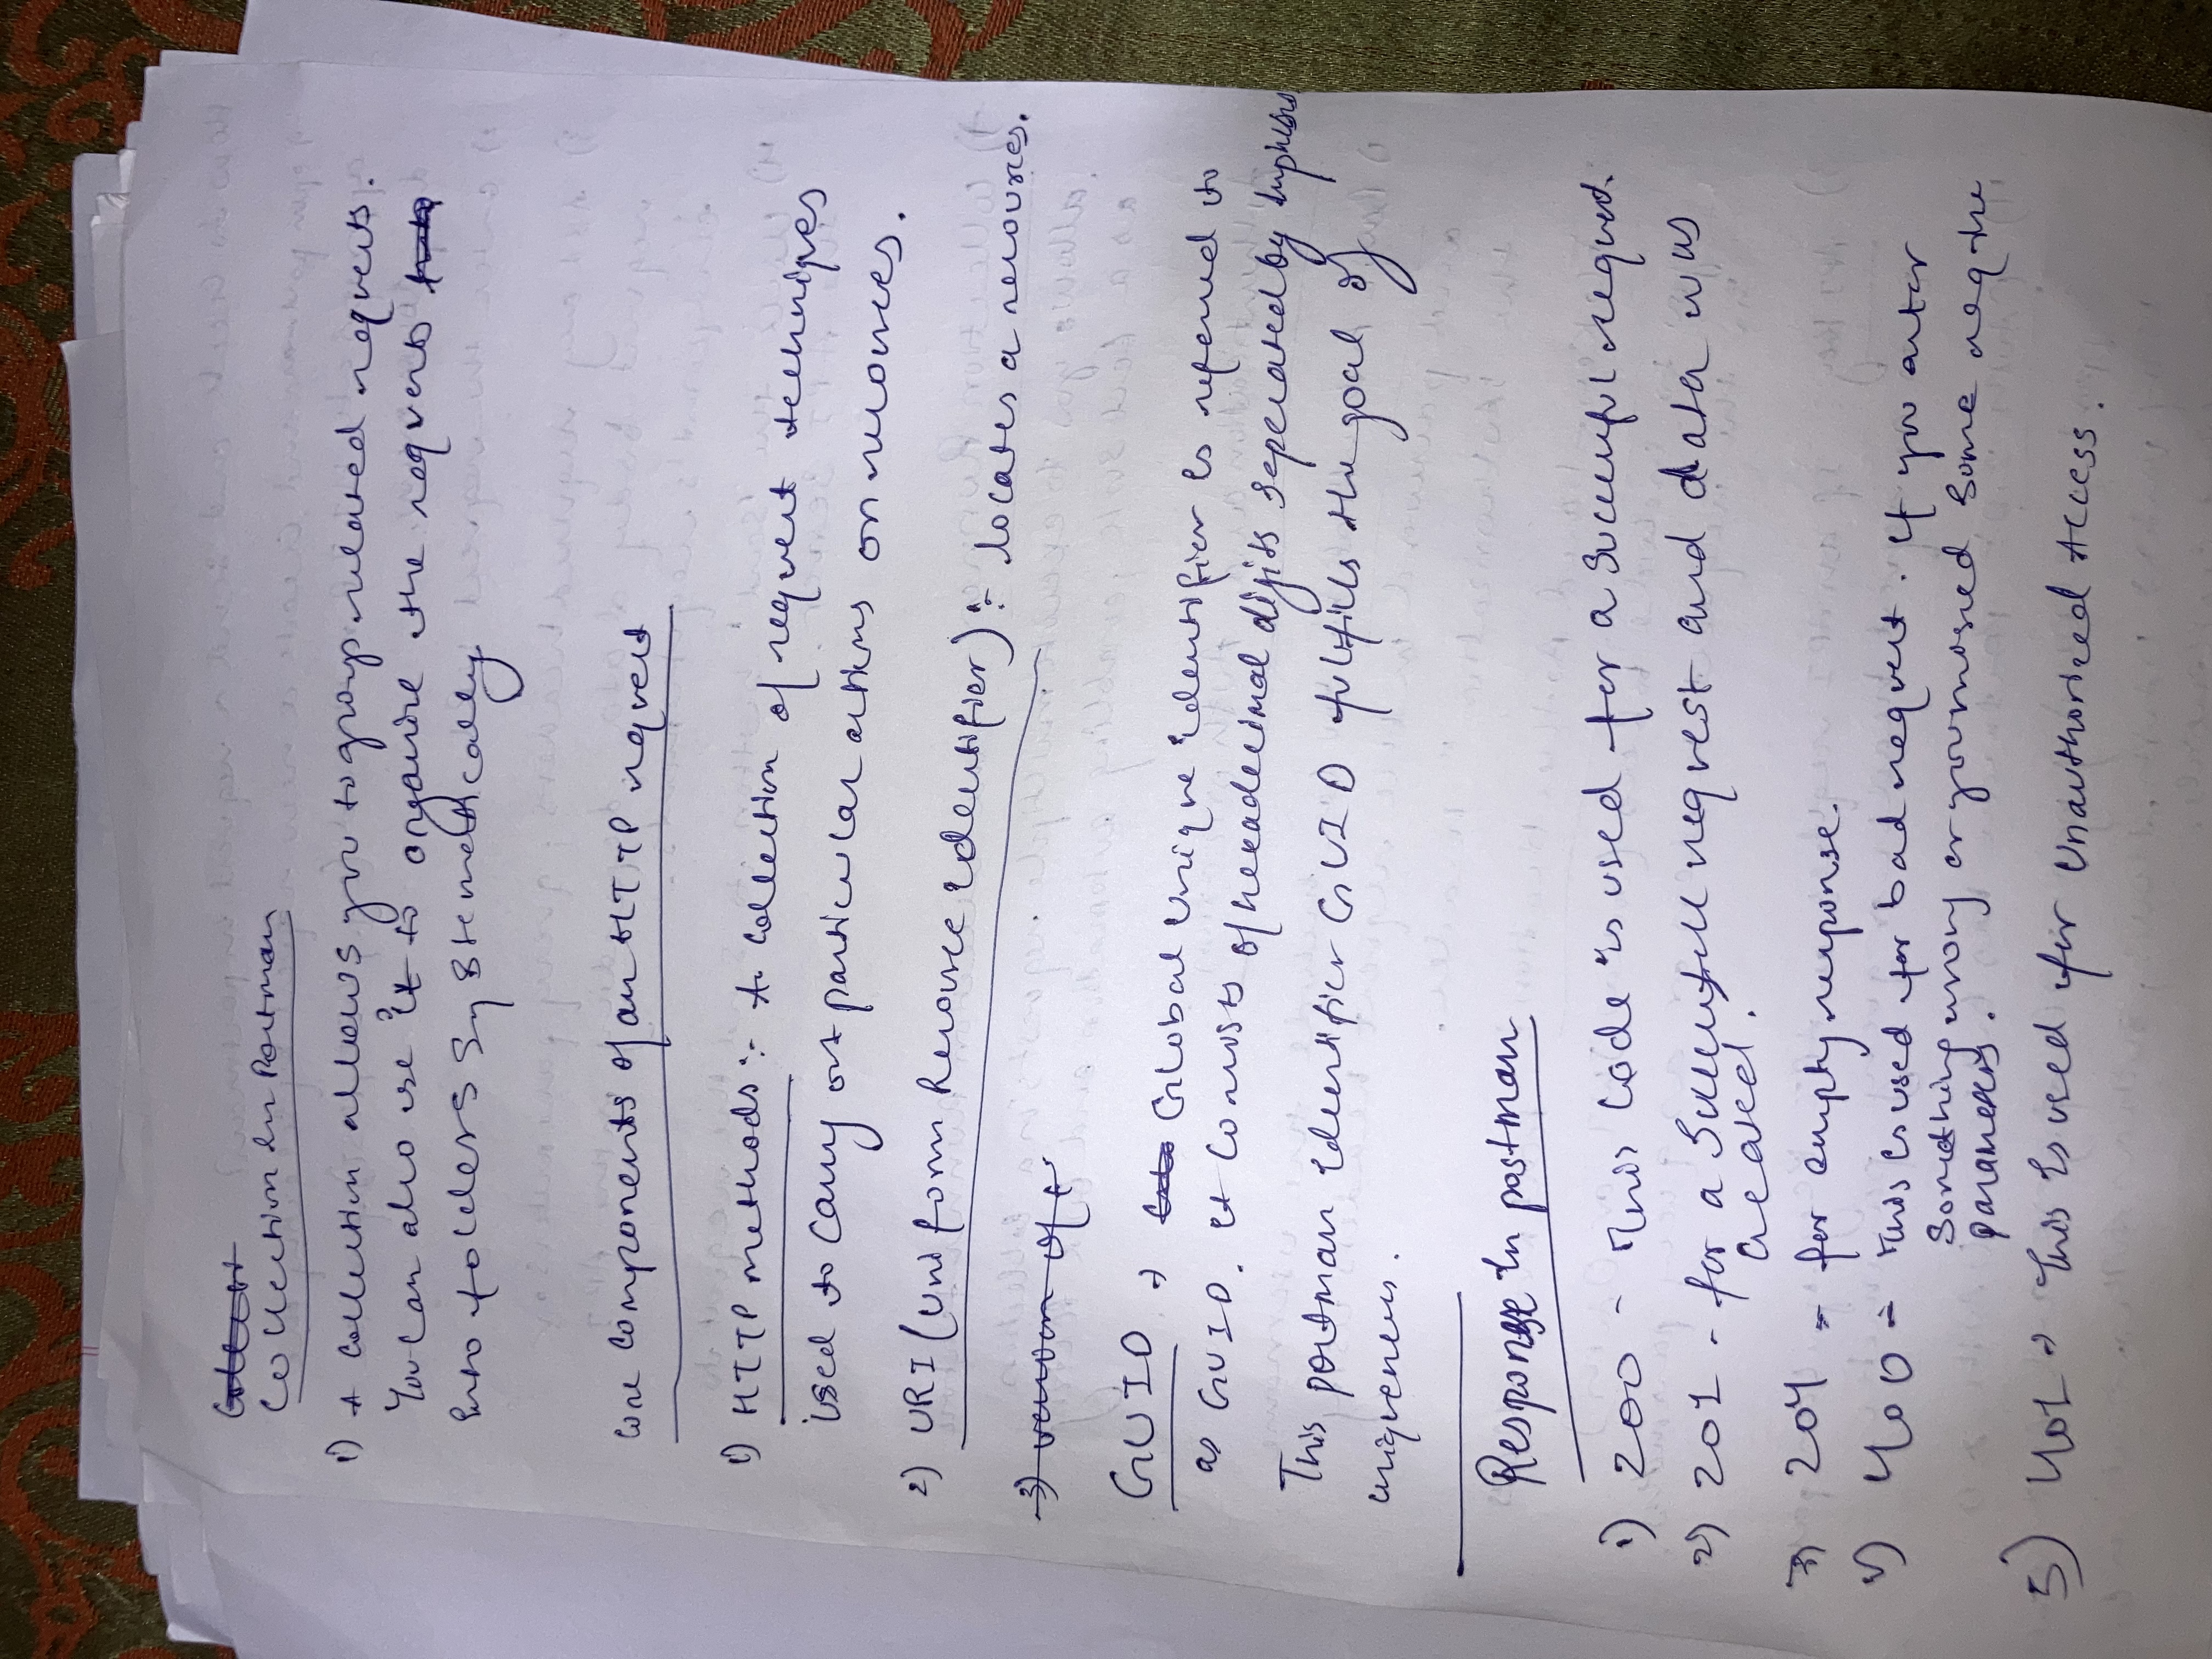 Collection In Postman
1) A collection allows you to group related requests.
You can also use it to organize the requests
into folders systemetically
Core components of an HTTP request
1) HTTP methods :- A collection of request techniques
used to carry out particular actions on resources.
2) URI (Uniform Resource Identifier) :- locates a resources.
3) version of
GUID → Global Unique identifier is referred to
as GUID. It consists of hexadecimal digits seperated by hyphens
This postman identifier GUID fulfills the goal of
uniqueness.
Response In postman
1) 200 - This code is used for a Successful request.
2) 201 - for a Successfull request and data was
created.
3) 204 - for empty response.
4) 400 - This is used for bad request. If you enter
Something wrong or you missed some
parameters.
5) 401 → This is used for Unauthorized Access.